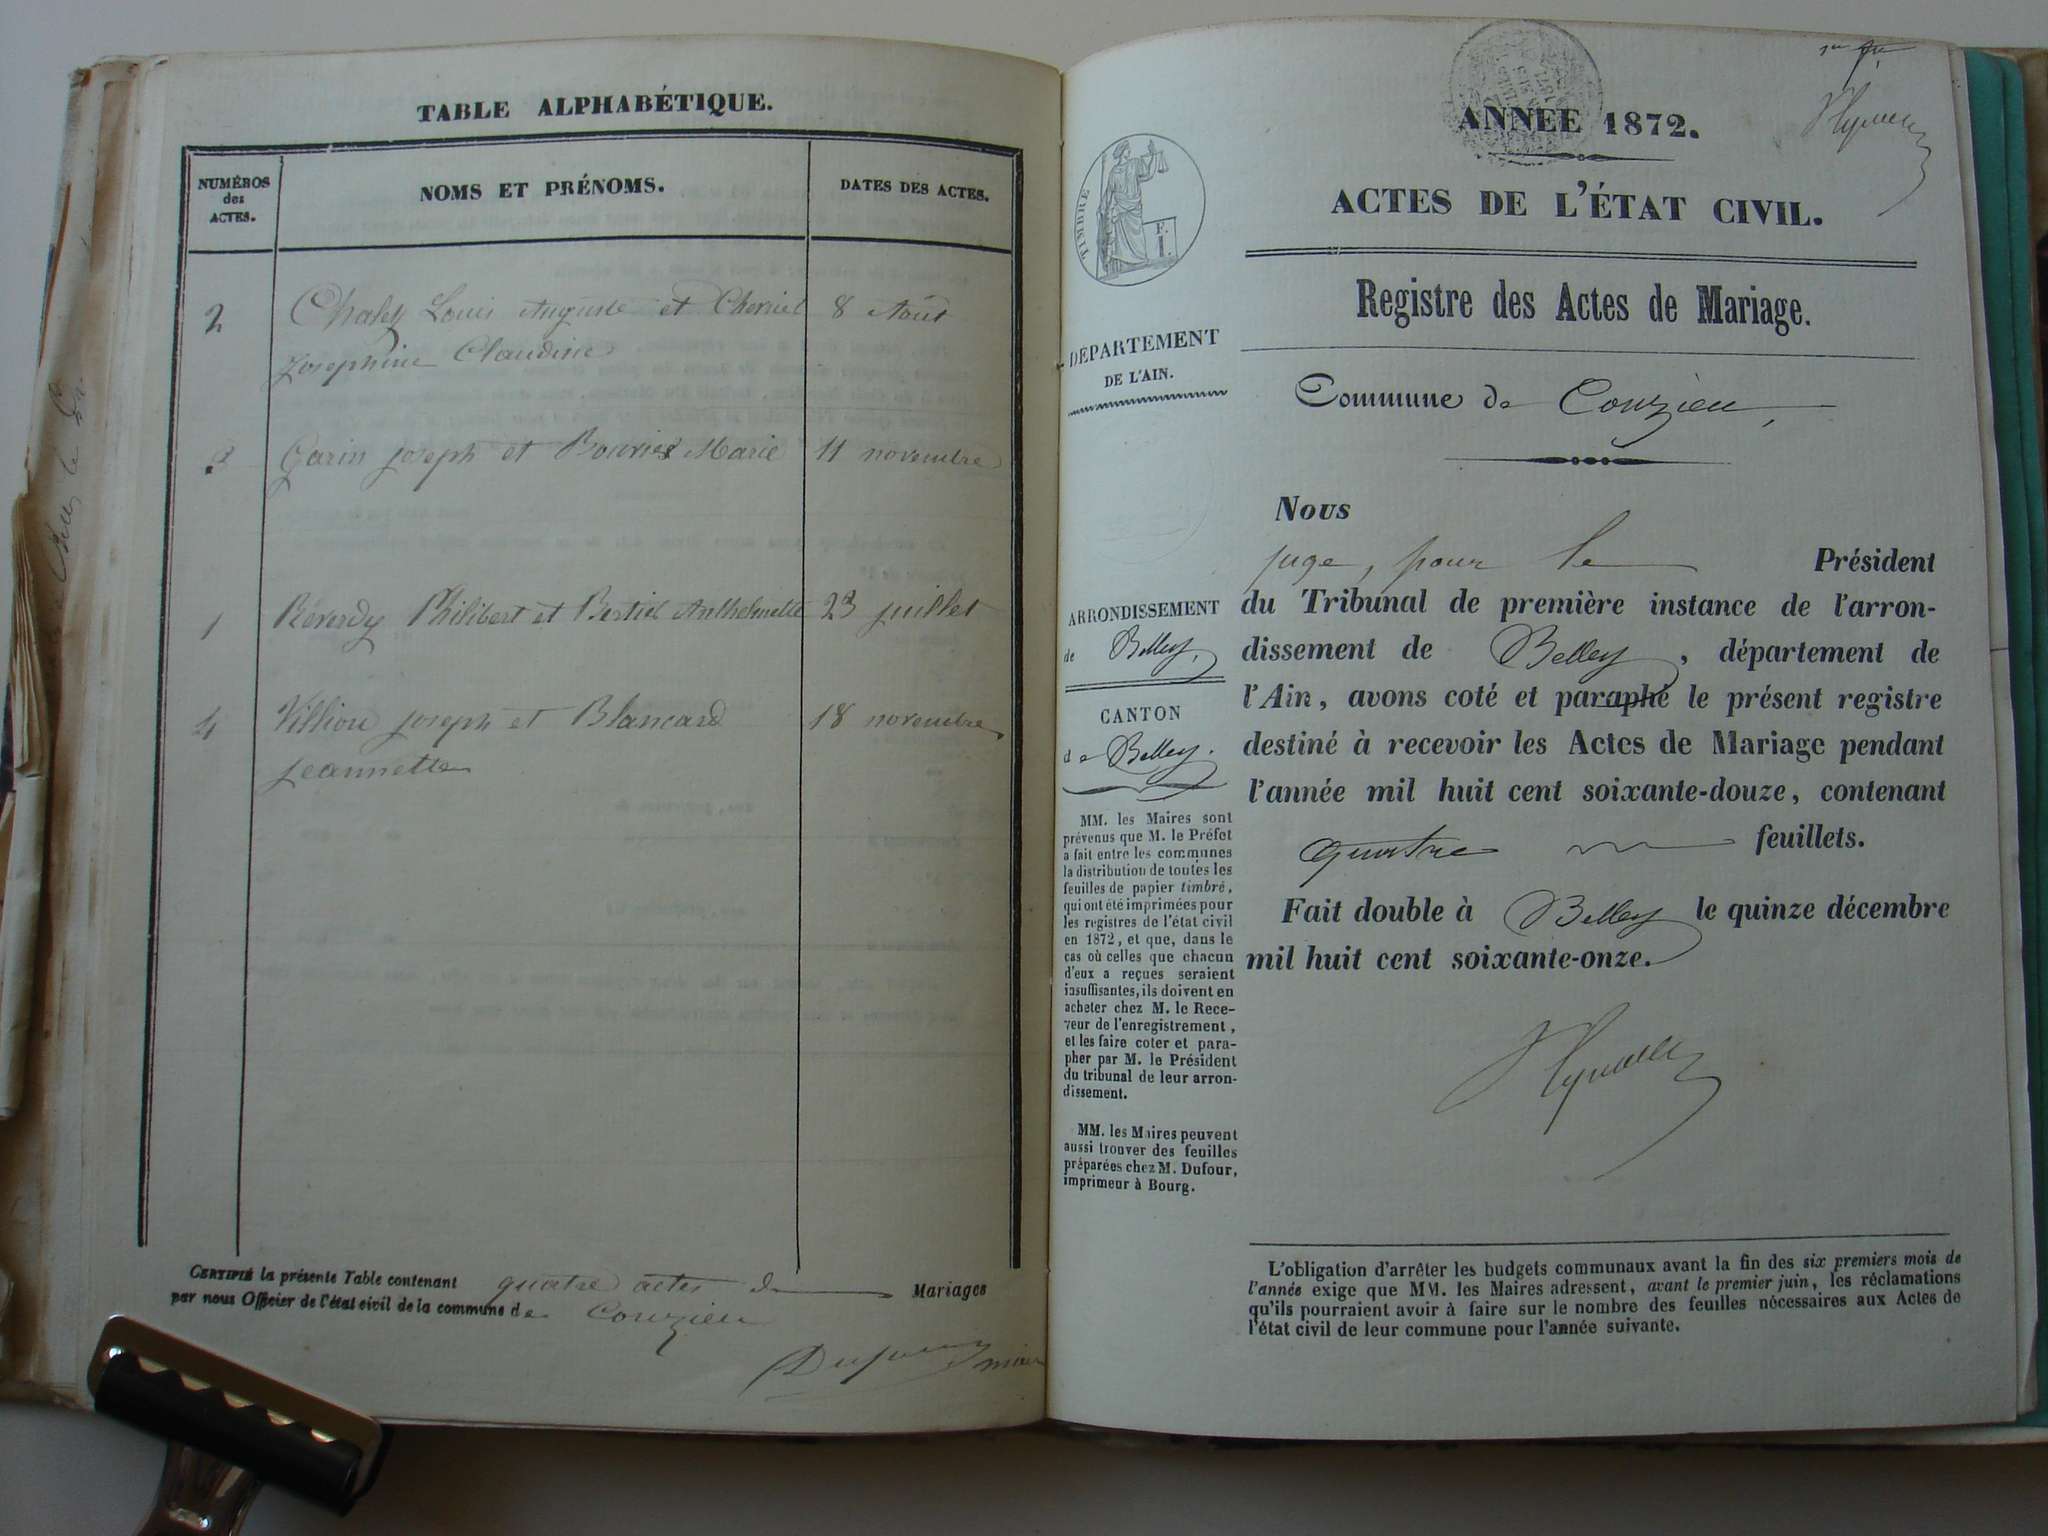 TABLE ALPHABÉTIQUE.
NUMÉROS
des
ACTES.
NOMS ET PRÉNOMS.
DATES DES ACTES.
2 Chaley Louis Auguste et Cherriel 8 Août
Josephine Claudine
3 Garin Joseph et Bouvier Marie 11 novembre
1 Reverdy Philibert et Bertiel Anthelmette 23 juillet
4 Villiou Joseph et Blancard 18 novembre
Jeannette
CERTIFIÉ la présente Table contenant quatre actes de Mariages
par nous Officier de l'état civil de la commune de Couzieu
maire
ANNÉE 1872.
ACTES DE L'ÉTAT CIVIL.
TIMBRE
F.
1.
Registre des Actes de Mariage.
DÉPARTEMENT
DE L'AIN.
Commune de Couzieu,
Nous
juge, pour le Président
du Tribunal de première instance de l'arron-
dissement de Belley, département de
l'Ain, avons coté et paraphé le présent registre
destiné à recevoir les Actes de Mariage pendant
l'année mil huit cent soixante-douze, contenant
quatre feuillets.
Fait double à Belley le quinze décembre
mil huit cent soixante-onze.
ARRONDISSEMENT
de Belley,
CANTON
de Belley.
MM. les Maires sont
prévenus que M. le Préfet
a fait entre les communes
la distribution de toutes les
feuilles de papier timbré,
qui ont été imprimées pour
les registres de l'état civil
en 1872, et que, dans le
cas où celles que chacun
d'eux a reçues seraient
insuffisantes, ils doivent en
acheter chez M. le Rece-
veur de l'enregistrement,
et les faire coter et para-
pher par M. le Président
du tribunal de leur arron-
dissement.
MM. les Maires peuvent
aussi trouver des feuilles
préparées chez M. Dufour,
imprimeur à Bourg.
L'obligation d'arrêter les budgets communaux avant la fin des six premiers mois de
l'année exige que MM. les Maires adressent, avant le premier juin, les réclamations
qu'ils pourraient avoir à faire sur le nombre des feuilles nécessaires aux Actes de
l'état civil de leur commune pour l'année suivante.